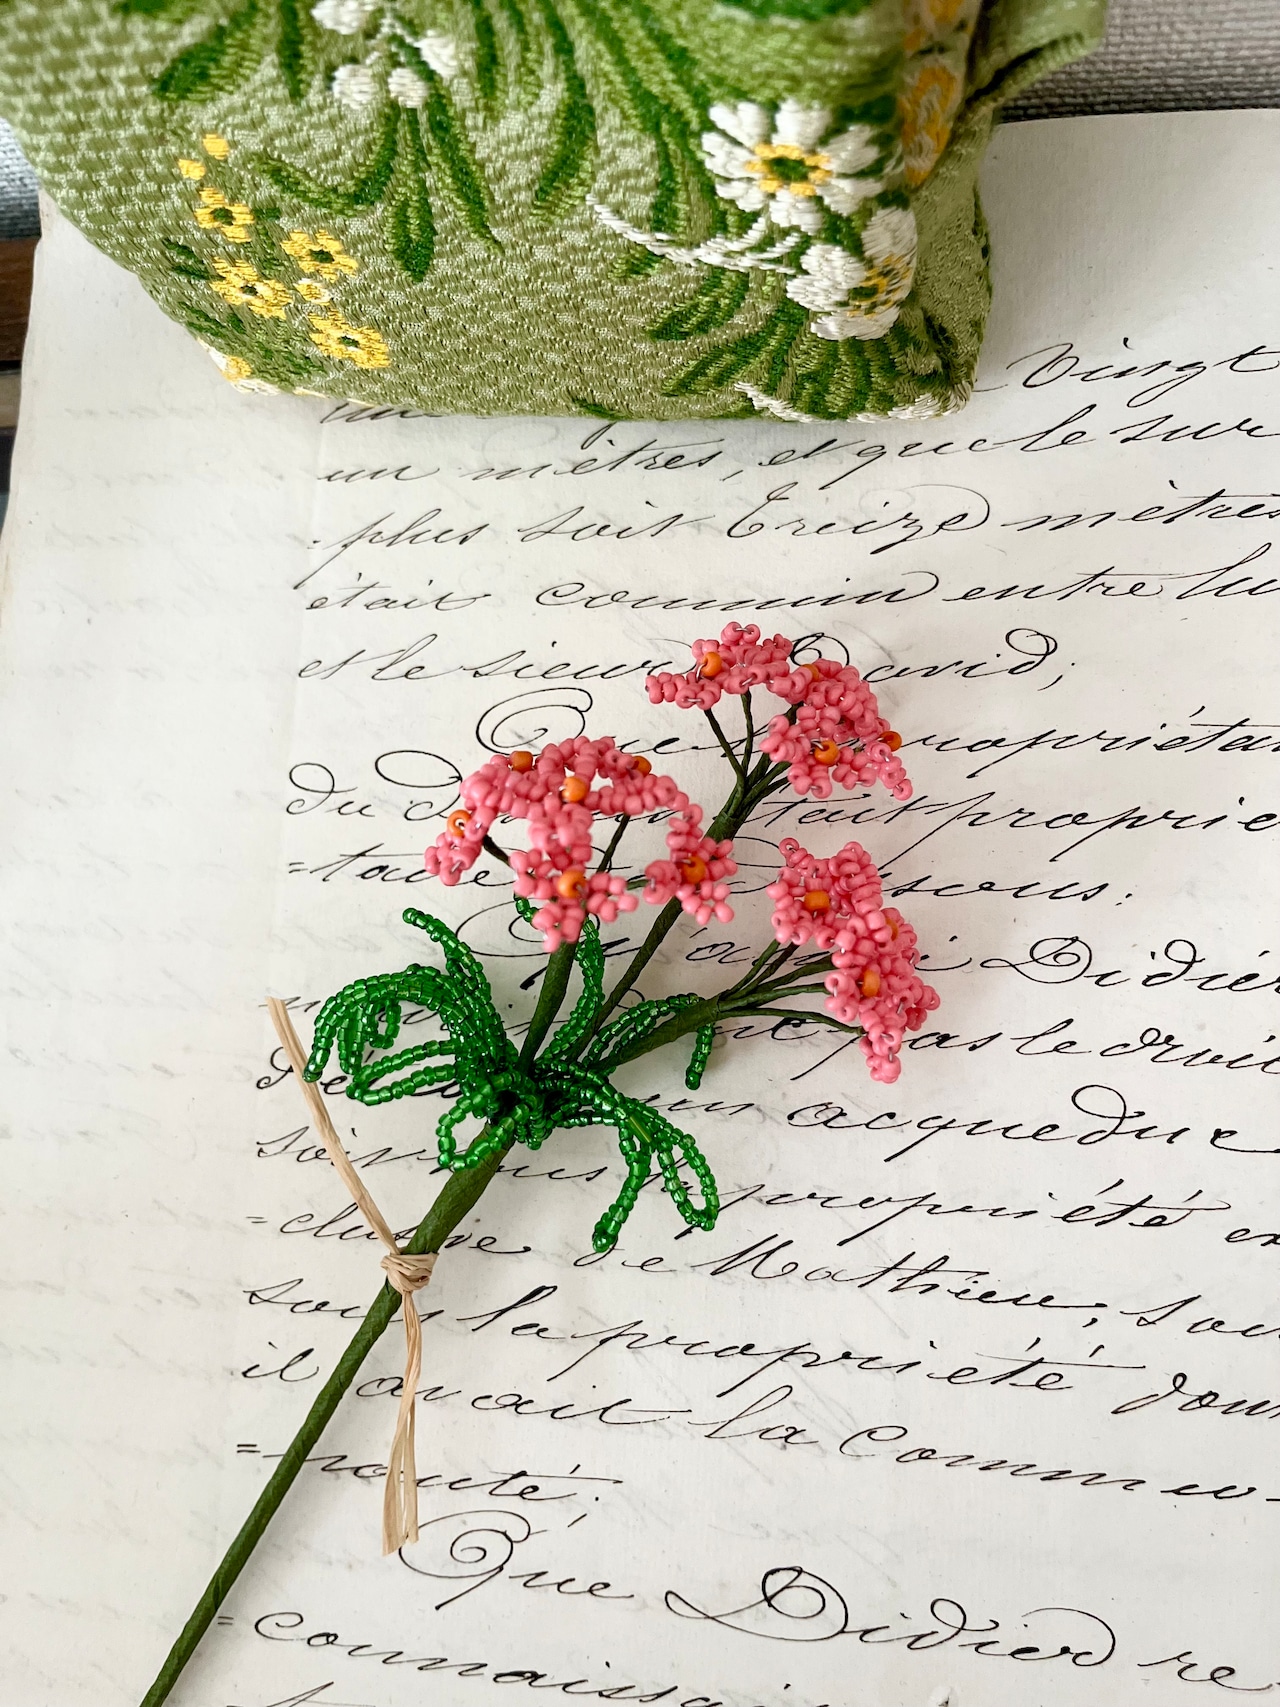 Vingt
un mètres, et que le sur
plus soit Treize mètres
était commun entre lui
et le sieur David;
Que propriétai
du tait proprie
=taire ssous:
Qu'a i Didier
pas le droit
un acqueduc
soit sous la propriété ex
=clusive de Mathieu, soi
sous la propriété dont
il avait la commu-
=nauté;
Que Didier re
=connaiss